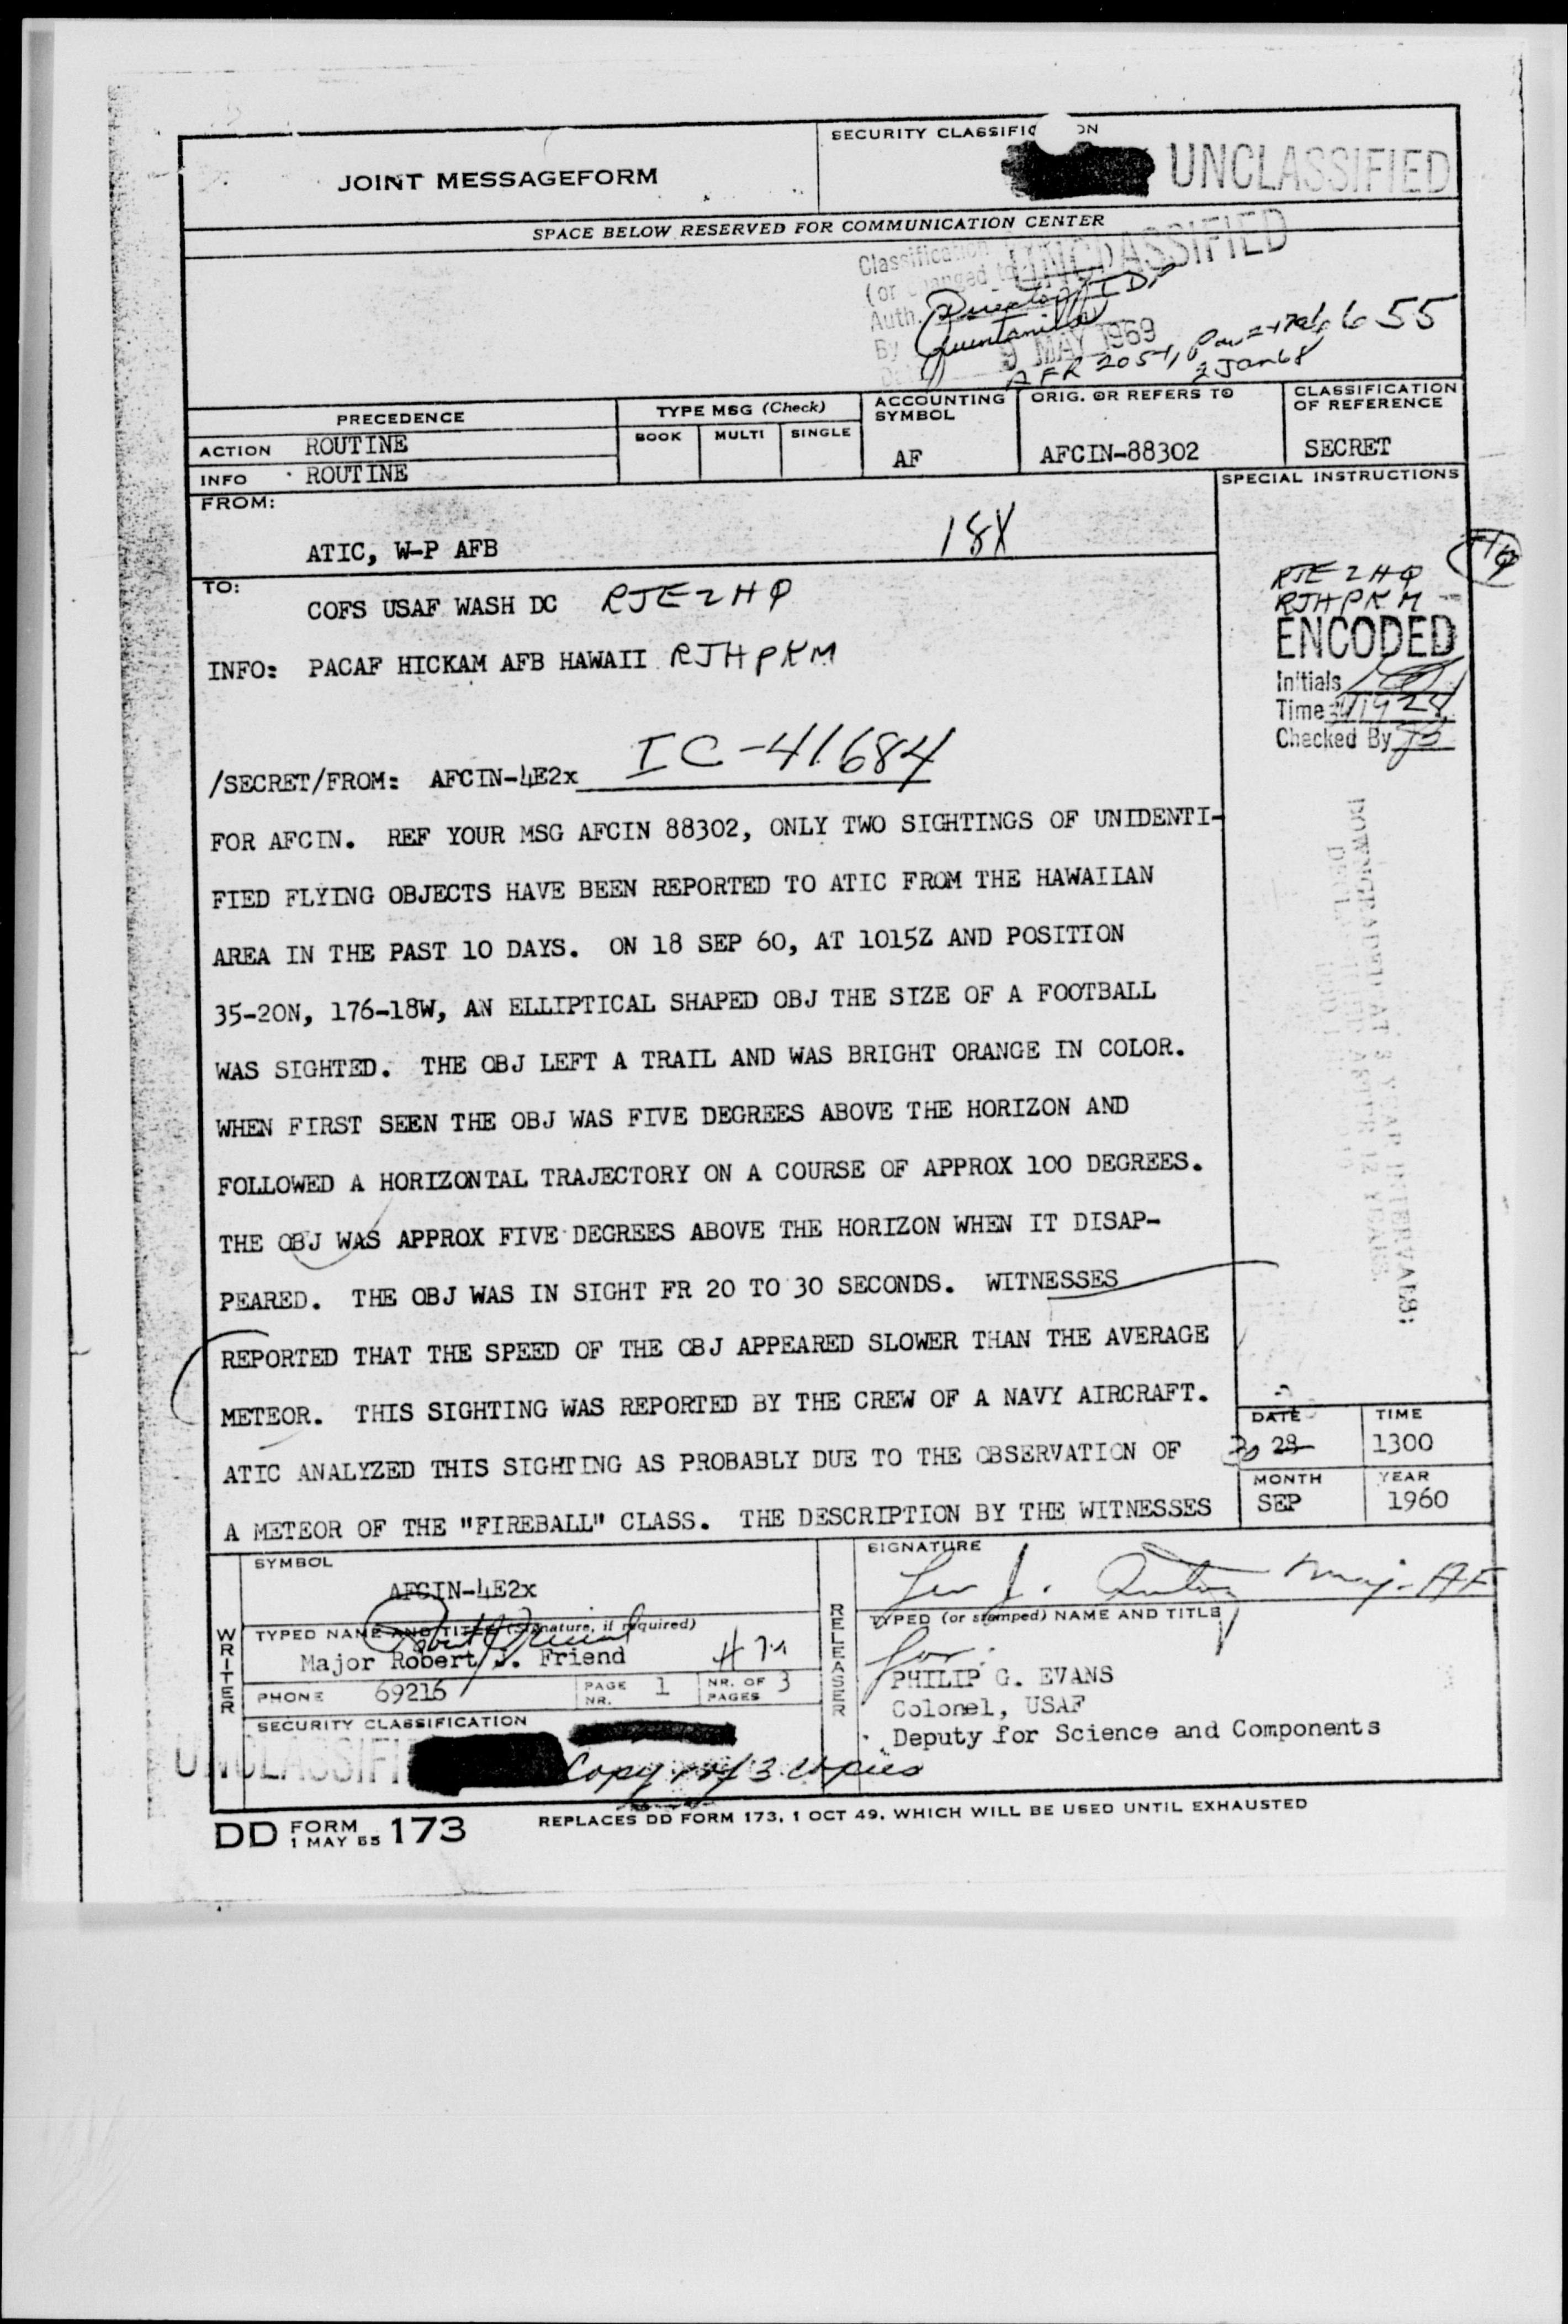 JOINT MESSAGEFORM
SECURITY CLASSIFIC ON
UNCLASSIFIED
SPACE BELOW RESERVED FOR COMMUNICATION CENTER
Classification UNCLASSIFIED
(or changed to
Auth. Director
By Quintanilla
9 MAY 1969
AFR 205-1, 655
2 Jan 68
PRECEDENCE
TYPE MSG (Check)
ACCOUNTING SYMBOL
ORIG. OR REFERS TO
CLASSIFICATION OF REFERENCE
ACTION ROUTINE
BOOK MULTI SINGLE
AF
AFCIN-88302
SECRET
INFO ROUTINE
FROM:
SPECIAL INSTRUCTIONS
ATIC, W-P AFB
18X
TO:
COFS USAF WASH DC RJEZHQ
INFO: PACAF HICKAM AFB HAWAII RJHPKM
RJEZHQ
RJHPKM
ENCODED
Initials
Time
Checked By
/SECRET/FROM: AFCIN-4E2x IC-41684
FOR AFCIN. REF YOUR MSG AFCIN 88302, ONLY TWO SIGHTINGS OF UNIDENTI-
FIED FLYING OBJECTS HAVE BEEN REPORTED TO ATIC FROM THE HAWAIIAN
AREA IN THE PAST 10 DAYS. ON 18 SEP 60, AT 1015Z AND POSITION
35-20N, 176-18W, AN ELLIPTICAL SHAPED OBJ THE SIZE OF A FOOTBALL
WAS SIGHTED. THE OBJ LEFT A TRAIL AND WAS BRIGHT ORANGE IN COLOR.
WHEN FIRST SEEN THE OBJ WAS FIVE DEGREES ABOVE THE HORIZON AND
FOLLOWED A HORIZONTAL TRAJECTORY ON A COURSE OF APPROX 100 DEGREES.
THE OBJ WAS APPROX FIVE DEGREES ABOVE THE HORIZON WHEN IT DISAP-
PEARED. THE OBJ WAS IN SIGHT FR 20 TO 30 SECONDS. WITNESSES
REPORTED THAT THE SPEED OF THE OBJ APPEARED SLOWER THAN THE AVERAGE
METEOR. THIS SIGHTING WAS REPORTED BY THE CREW OF A NAVY AIRCRAFT.
ATIC ANALYZED THIS SIGHTING AS PROBABLY DUE TO THE OBSERVATION OF
A METEOR OF THE "FIREBALL" CLASS. THE DESCRIPTION BY THE WITNESSES
DOWNGRADED AT 3 YEAR INTERVALS;
AFTER 12 YEARS.
DATE TIME
30 28 1300
MONTH YEAR
SEP 1960
SYMBOL
AFCIN-4E2x
WRITER
TYPED NAME AND TITLE (Signature, if required)
Major Robert J. Friend
PHONE 69216
PAGE NR. 1
NR. OF PAGES 3
SECURITY CLASSIFICATION
UNCLASSIFI
Copy 1 of 3 copies
RELEASER
SIGNATURE
Maj. AF
TYPED (or stamped) NAME AND TITLE
for:
PHILIP G. EVANS
Colonel, USAF
Deputy for Science and Components
DD FORM 1 MAY 55 173
REPLACES DD FORM 173, 1 OCT 49, WHICH WILL BE USED UNTIL EXHAUSTED